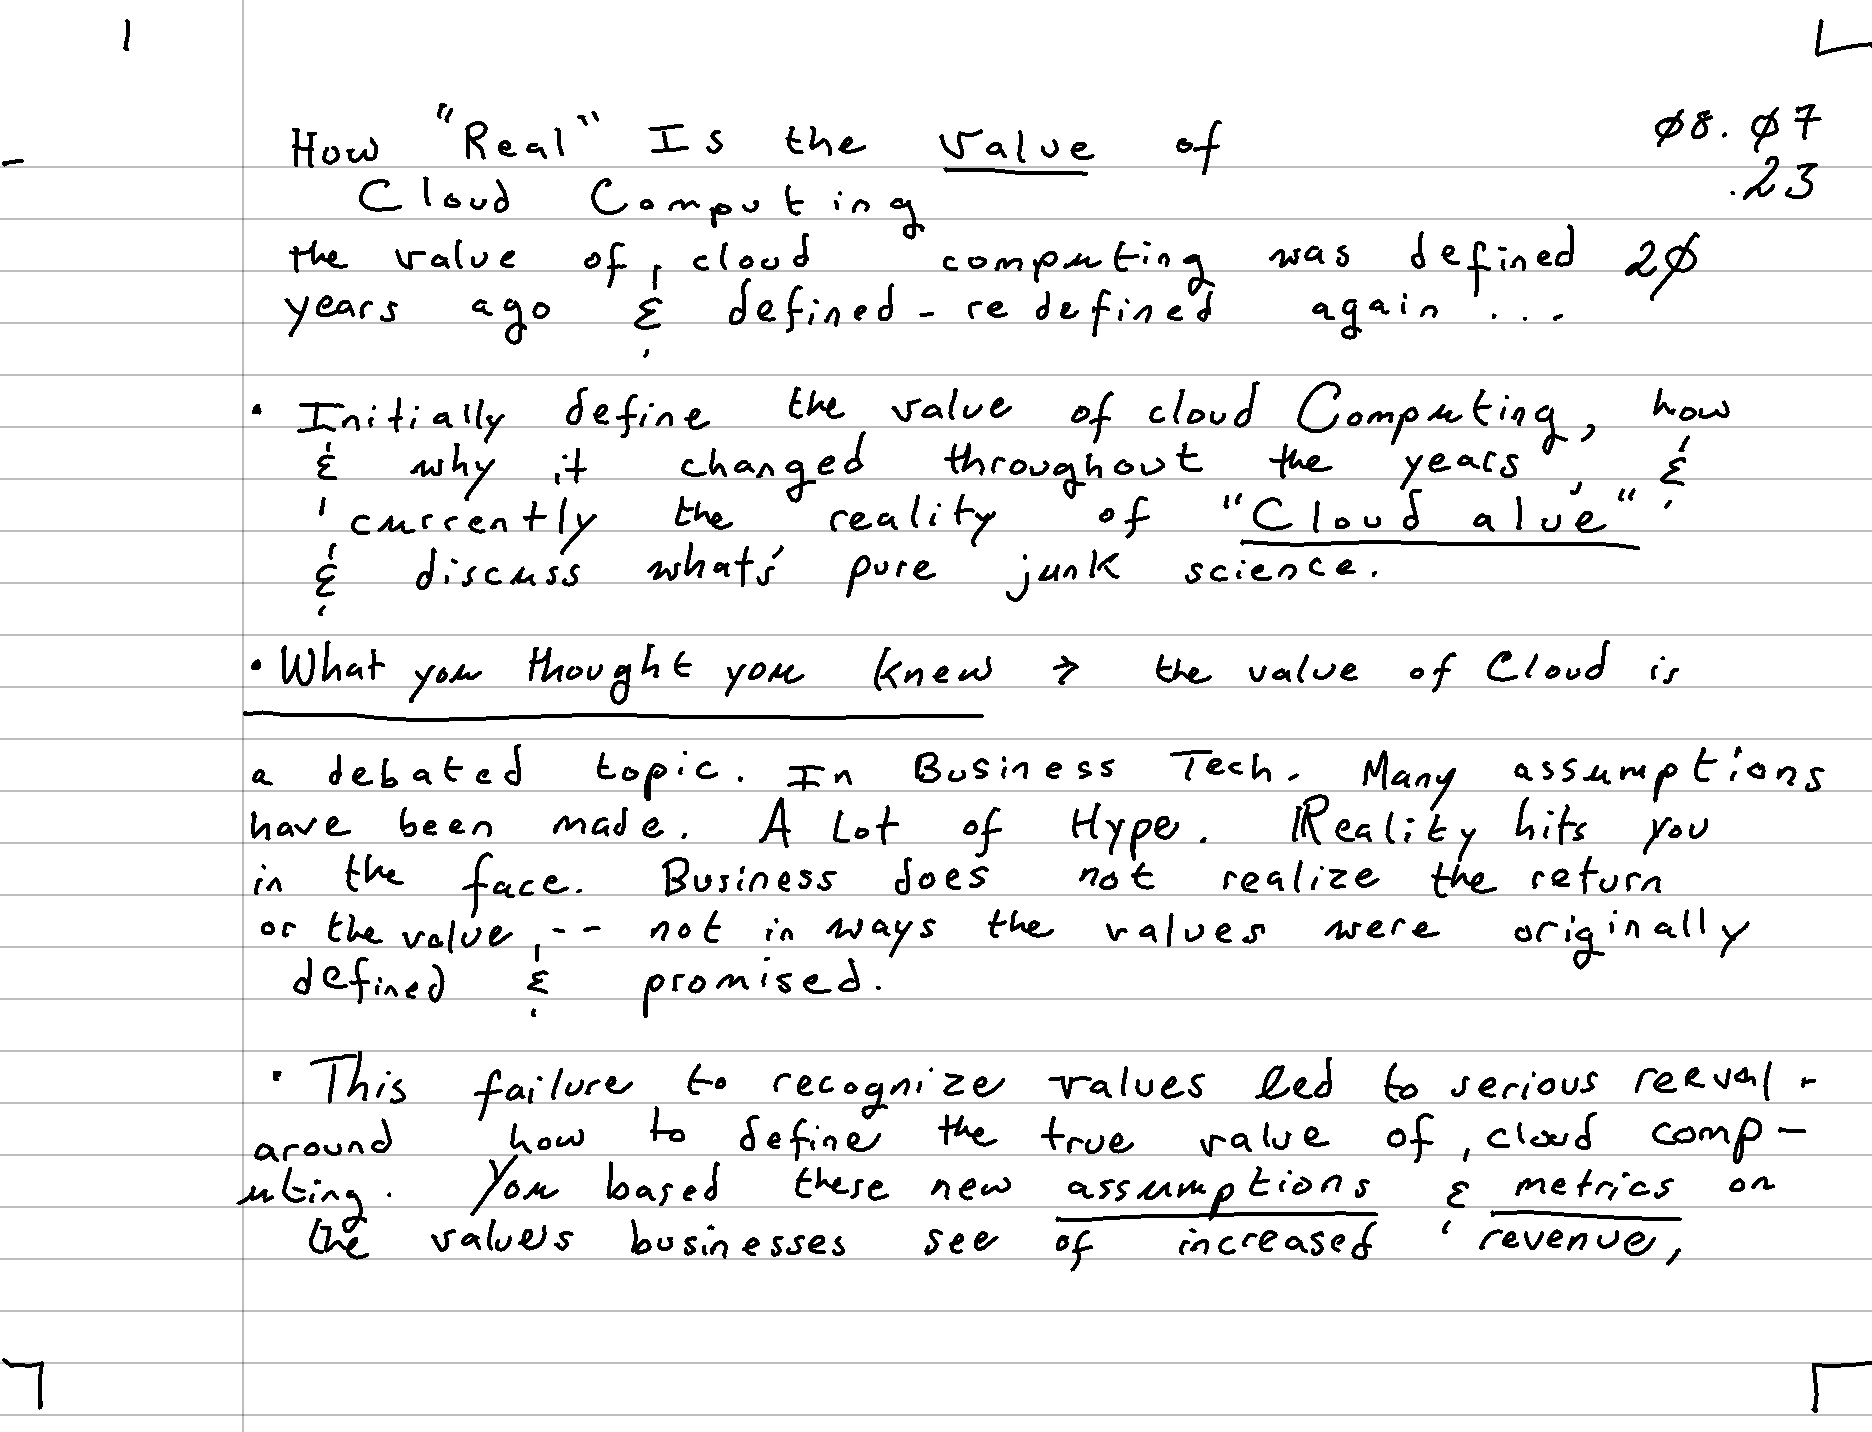 How "Real" Is the value of
Ø8.Ø7
.23
Cloud Computing
the value of cloud computing was defined 2Ø
years ago & defined - redefined again ...
• Initially define the value of cloud Computing, how
& why it changed throughout the years, &
currently the reality of "Cloud alue"
& discuss what's pure junk science.
• What you thought you knew → the value of Cloud is
a debated topic. In Business Tech. Many assumptions
have been made. A Lot of Hype. Reality hits you
in the face. Business does not realize the return
or the value, -- not in ways the values were originally
defined & promised.
• This failure to recognize values led to serious reeval -
around how to define the true value of cloud comp-
uting. You based these new assumptions & metrics on
the values businesses see of increased revenue,